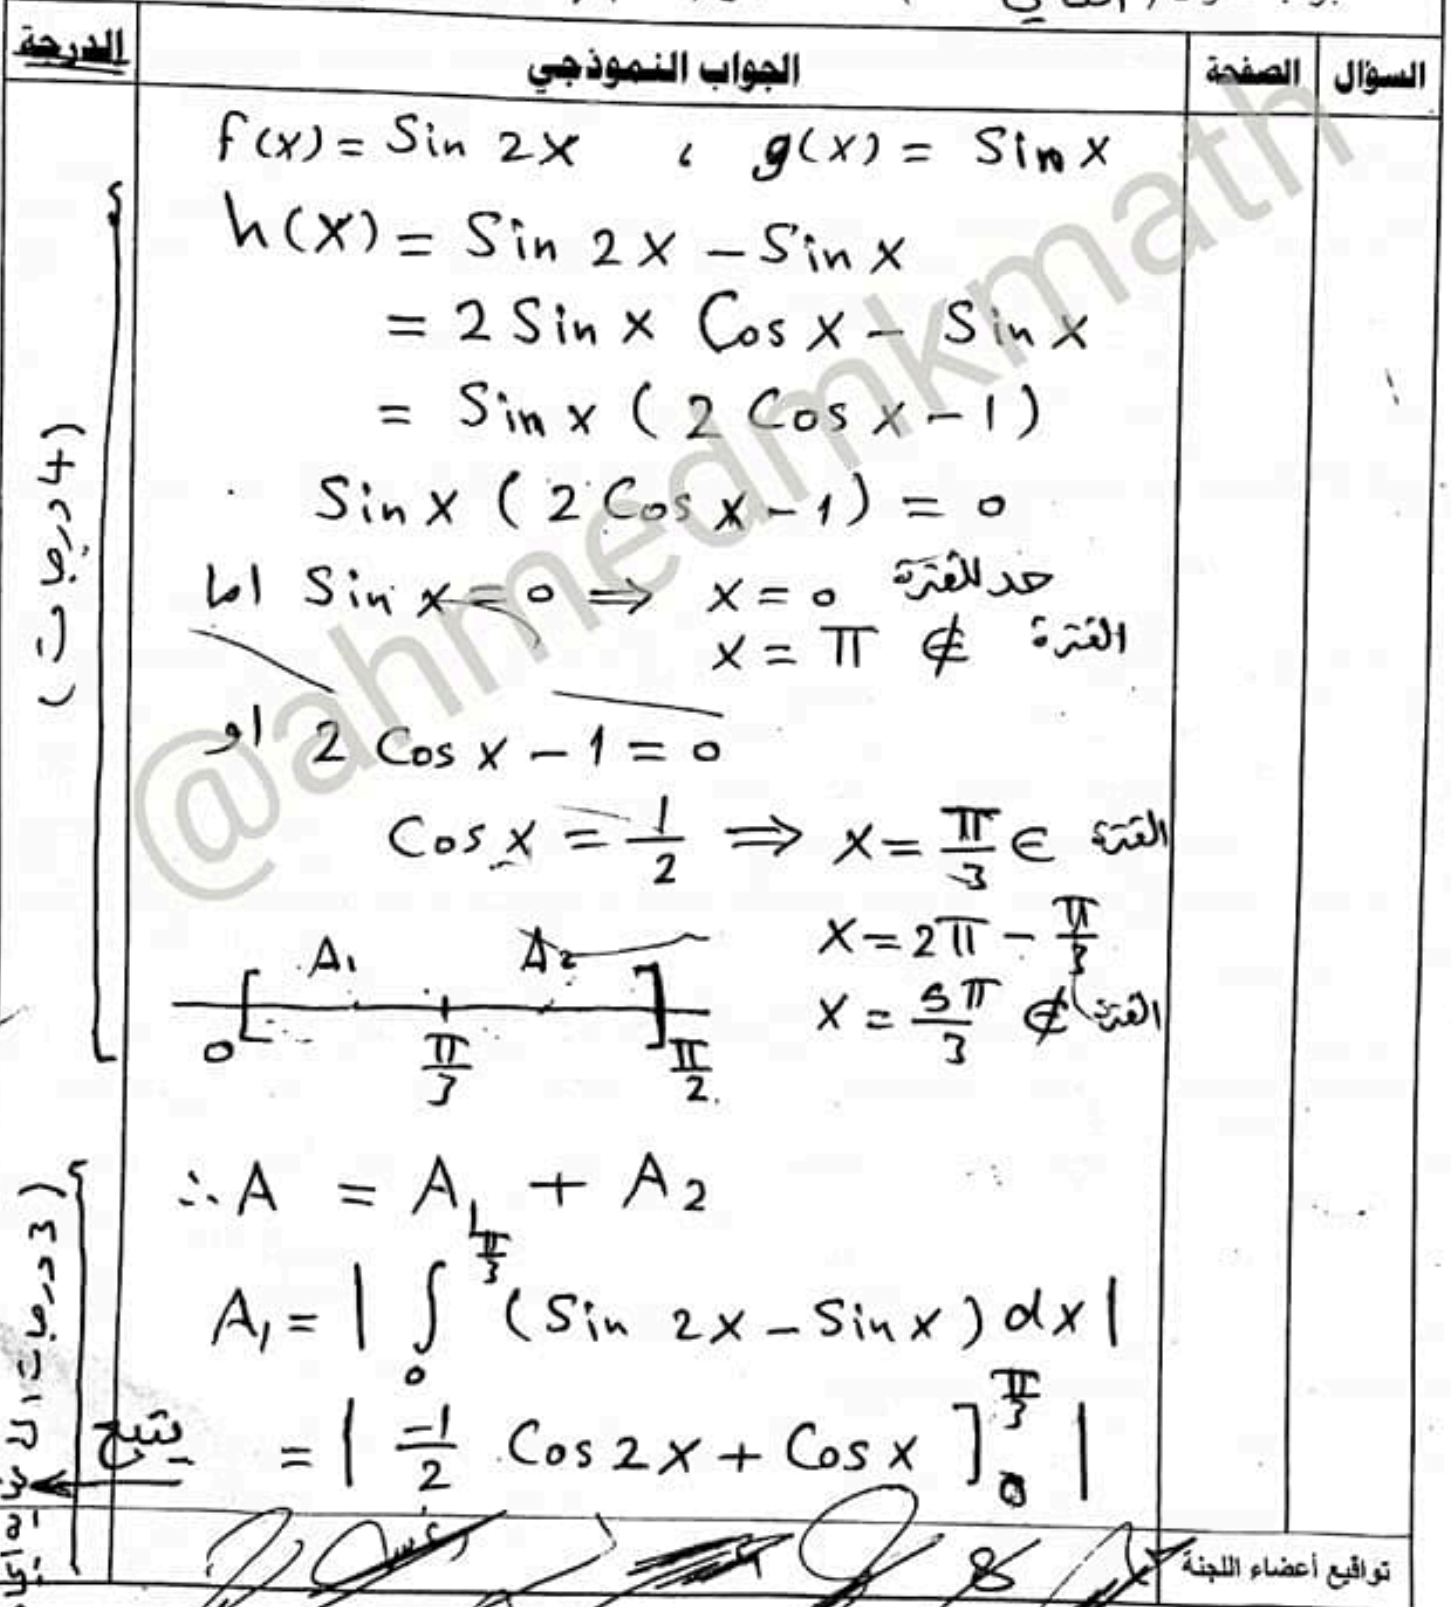 السؤال الصفحة الجواب النموذجي الدرجة
f(x) = Sin 2x ، g(x) = Sin x
h(x) = Sin 2x - Sin x
= 2 Sin x Cos x - Sin x
= Sin x (2 Cos x - 1)
Sin x (2 Cos x - 1) = 0
اما Sin x = 0 ⇒ x = 0 حد للفترة
x = π ∉ الفترة
او 2 Cos x - 1 = 0
Cos x = 1/2 ⇒ x = π/3 ∈ الفترة
x = 2π - π/3
x = 5π/3 ∉ الفترة
A1 A2
0 [ π/3 ] π/2
(4 درجات)
∴ A = A1 + A2
A1 = | ∫_0^{π/3} (Sin 2x - Sin x) dx |
= | -1/2 Cos 2x + Cos x ]_0^{π/3} |
يتبع
(3 درجات
تواقيع أعضاء اللجنة
8
@ahmedmkmath